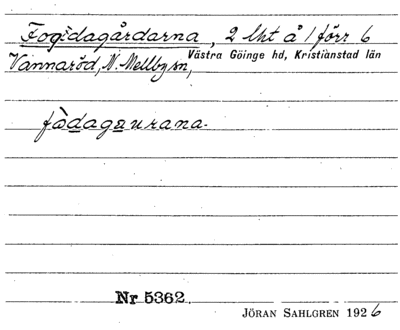 Fogdagårdarna, 2 lht å 1 förr 6
Västra Göinge hd, Kristianstad län
Vannaröd, N. Mellby sn,
fòdagaurana.
Nr 5362
JÖRAN SAHLGREN 1926